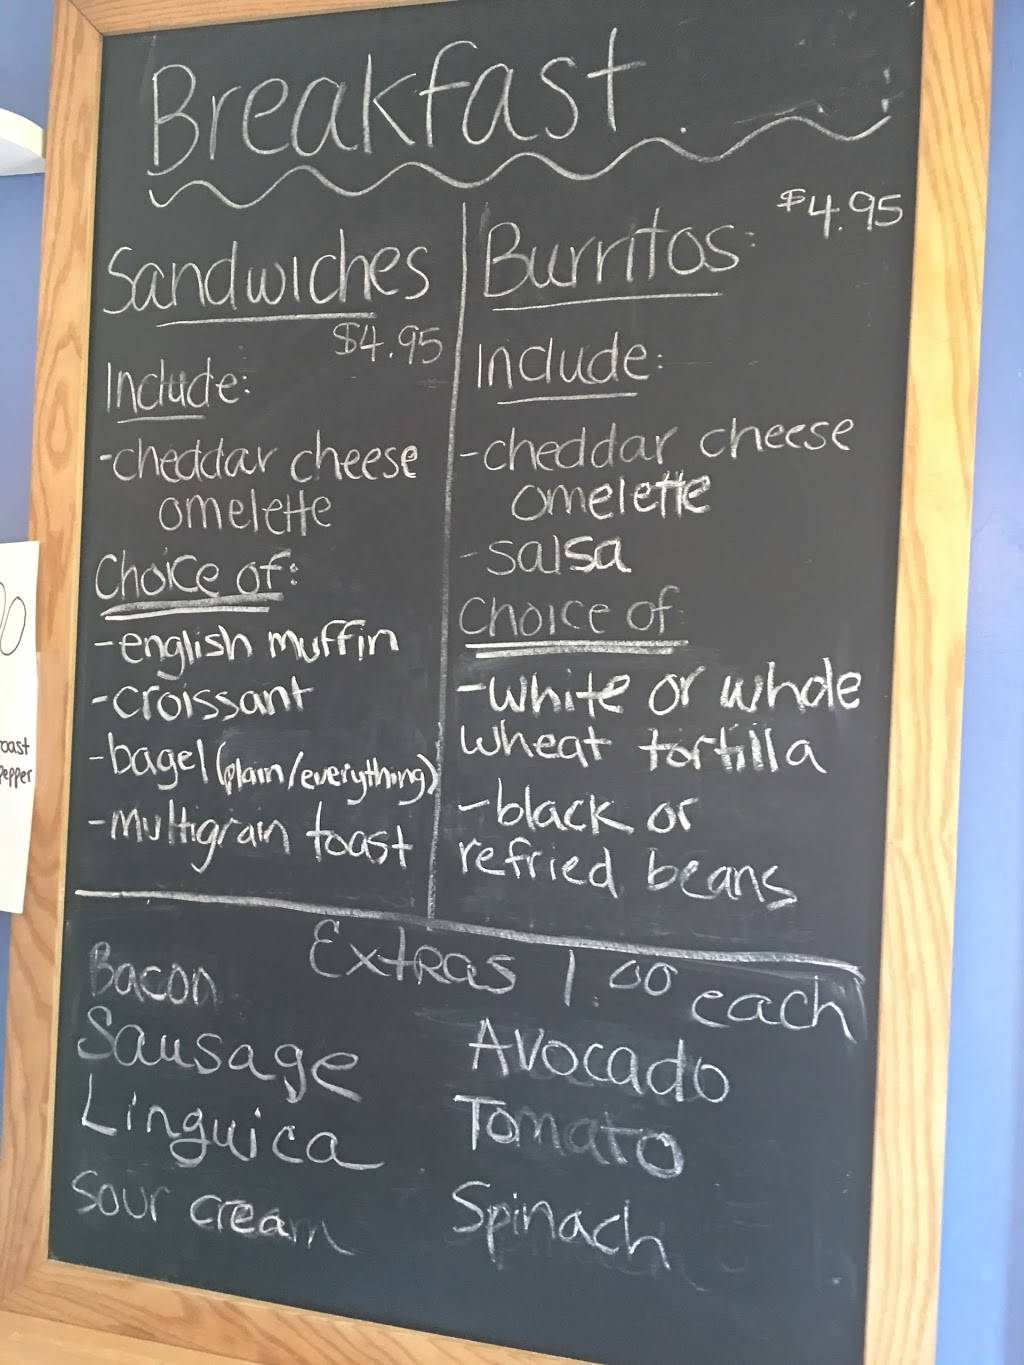 Breakfast
Sandwiches
$4.95
Include:
-cheddar cheese
omelette
Choice of:
-english muffin
-croissant
-bagel (plain/everything)
-multigrain toast
Burritos: $4.95
Include:
-cheddar cheese
omelette
-salsa
Choice of:
-white or whole
wheat tortilla
-black or
refried beans
Extras 1.00 each
Bacon
Sausage
Linguica
Sour cream
Avocado
Tomato
Spinach
oast
epper